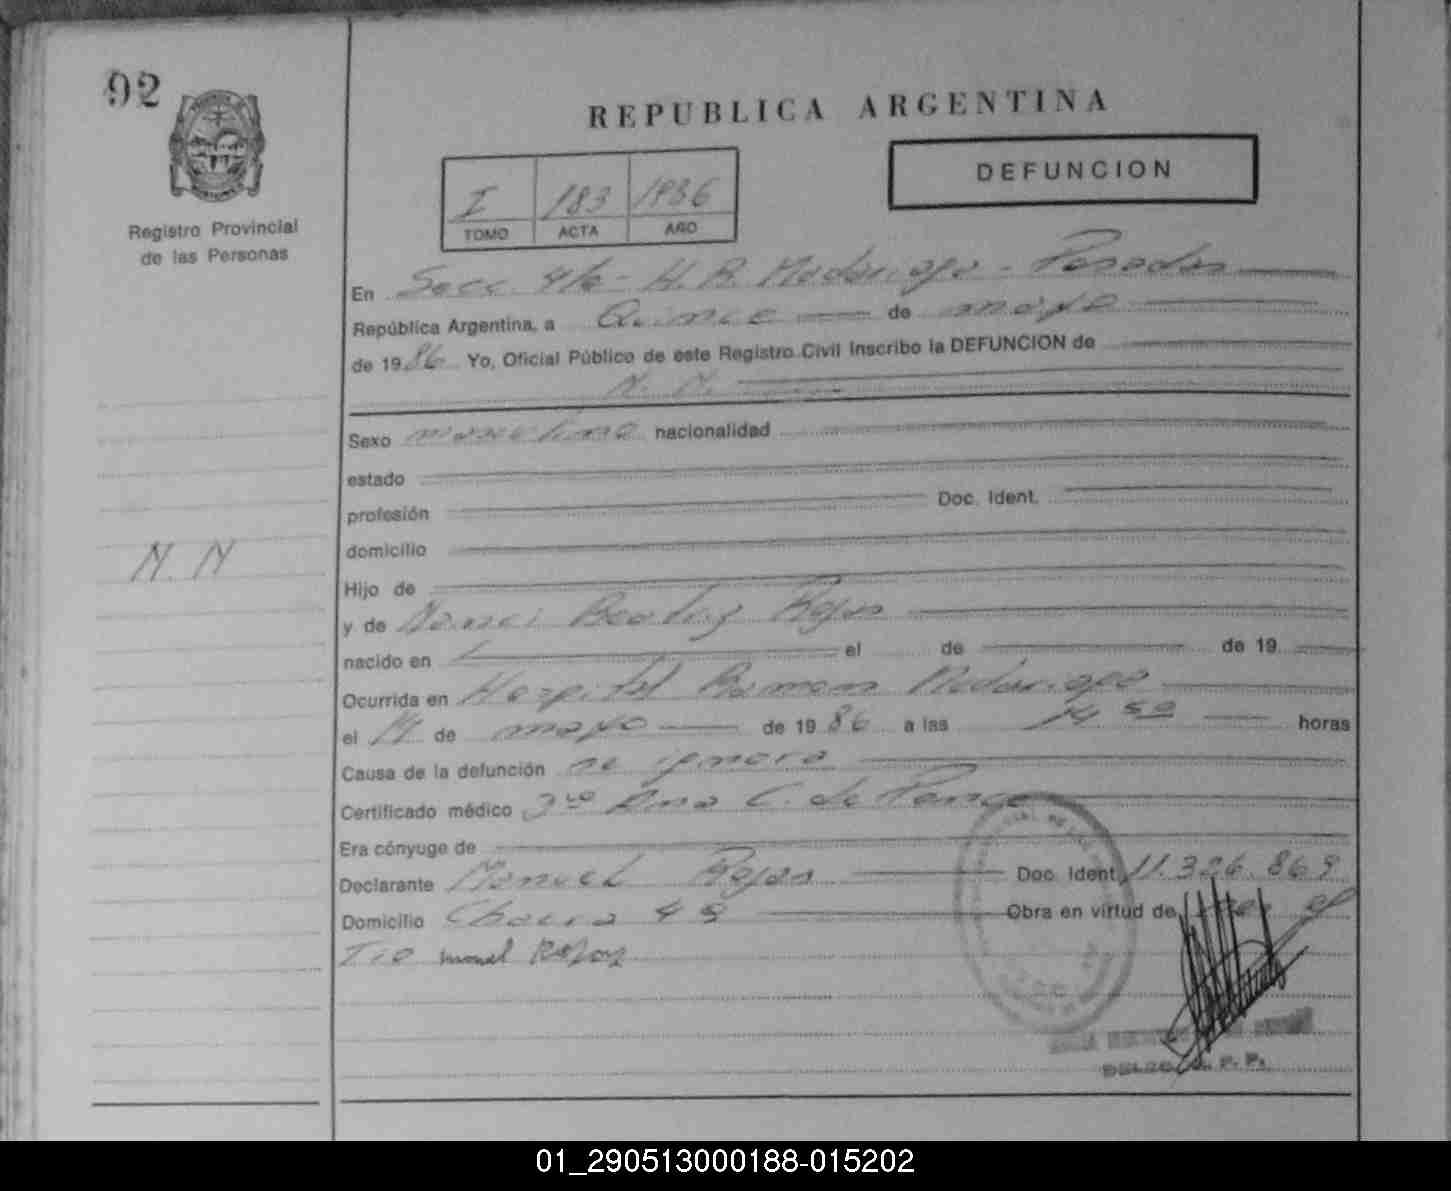 92
REPUBLICA ARGENTINA
DEFUNCION
I 183 1986
TOMO ACTA AÑO
Registro Provincial
de las Personas
En Secc. 4ta - H. R. Madariaga - Posadas
República Argentina, a Quince de mayo
de 1986 Yo, Oficial Público de este Registro Civil inscribo la DEFUNCION de
N. N.
Sexo masculino nacionalidad
estado
profesión Doc. Ident.
N. N
domicilio
Hijo de
y de Beatriz Rojas
nacido en el de de 19
Ocurrida en Hospital Ramon Madariaga
el 14 de mayo de 1986 a las 14 50 horas
Causa de la defunción se ignora
Certificado médico Ana C. de Ponce
Era cónyuge de
Declarante Manuel Rojas Doc. Ident. 11.326.869
Domicilio Chacra 49 Obra en virtud de ser el
Tio
01_290513000188-015202